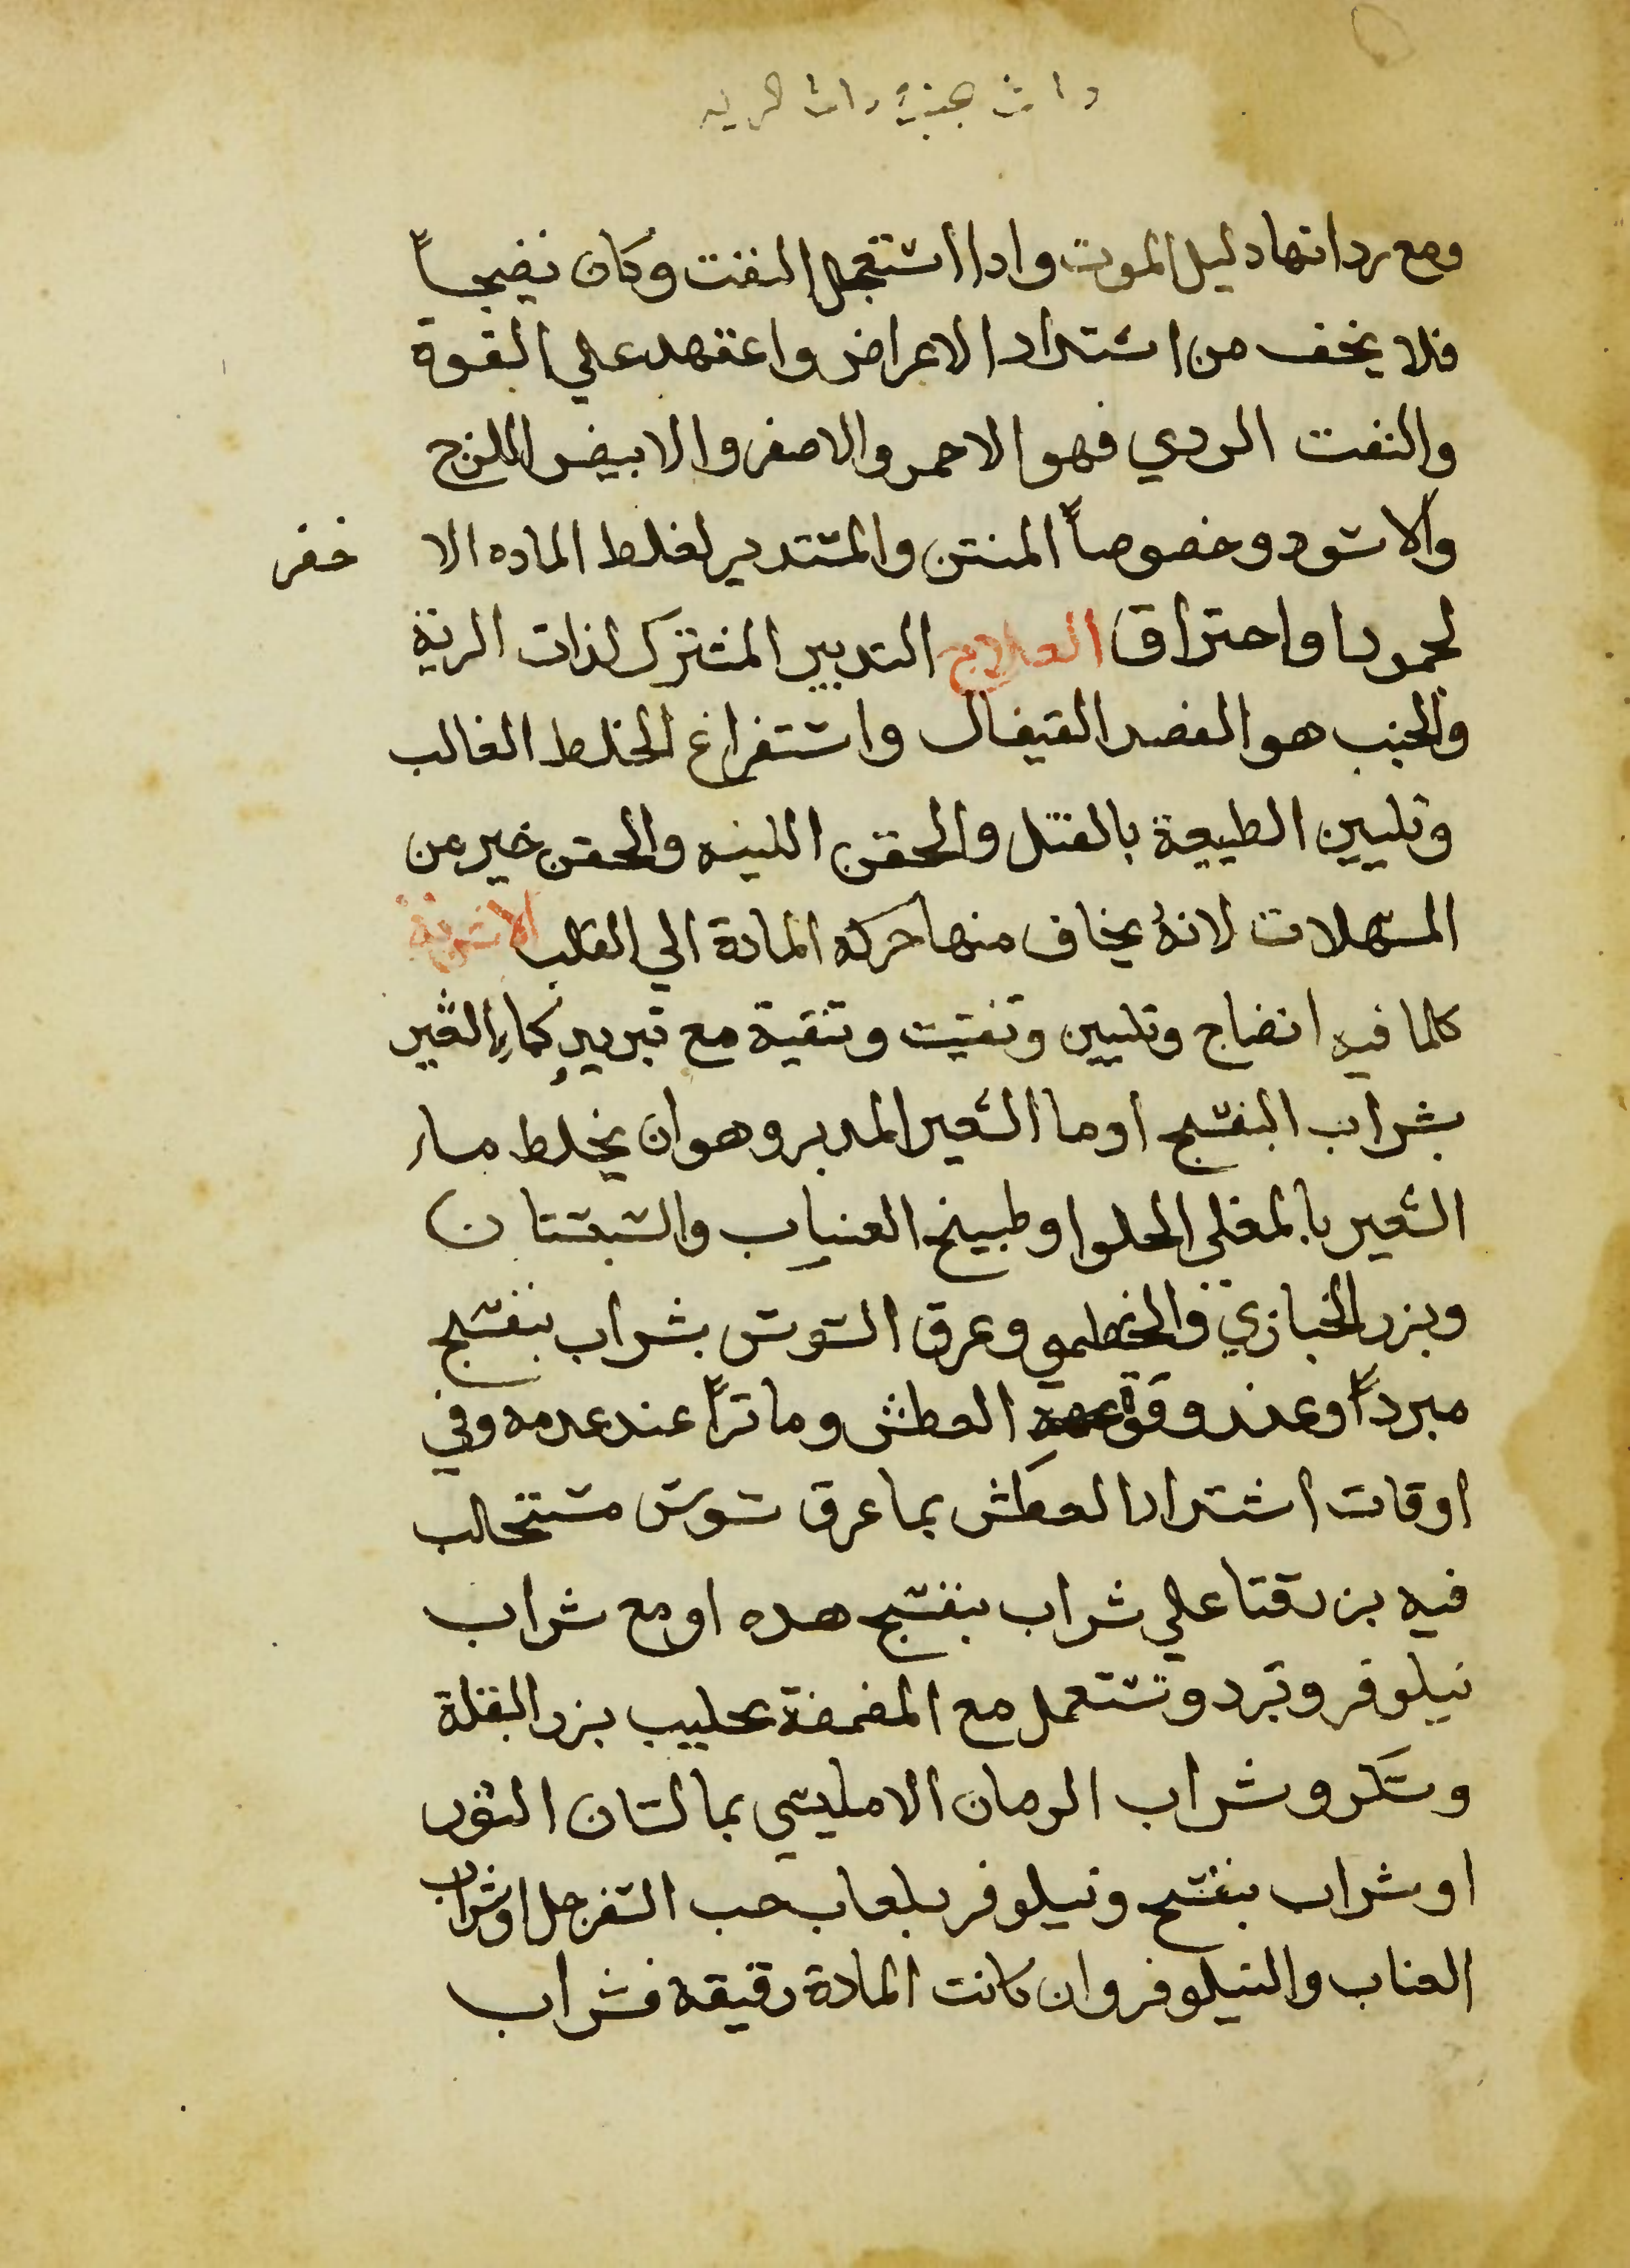 ذات جنب ذات الريه
ومع رداتها دليل الموت واذا استعجل النفت وكان نضيجاً
فلا يخف من اشتداد الاعراض واعتمد علي القوة
والنفت الردي فهو الاحمر والاصفر والابيض اللزج
والاسود وخصوصاً المنتن والمستدير لغلظ الماده الاخضر
لجمود او احتراق العلاج التدبير المشترك لذات الرية
والجنب هو الفصد القيفال واستفراغ الخلط الغالب
وتليين الطبيعة بالفتل والحقن اللينه والحقن خير من
المسهلات لانهُ يخاف منها حركه المادة الي القلب الاشربة
كلما فيه انضاج وتليين وتفتيت وتنقية مع تبريدٍ كماءِ الشعير
بشراب البنفسج او ما الشعير المدبر وهو ان يخلط ماء
الشعير بالمغلي الحلو او طبيخ العناب والسبستان
وبزر الخبازي والخطمي وعرق السوس بشراب بنفسج
مبرداً وعند وقوة العطش وماتراً عند عدمه وفي
اوقات اشتداد العطش بما عرق سوس مستحالب
فيه بزر قتا علي شراب بنفسج هده او مع شراب
نيلوفر وتبرد وتستعمل مع المضمضة بحليب بزر البقلة
وسكر وشراب الرمان الامليسي بما لسان الثور
او شراب بنفسج ونيلوفر بلعاب حب السفرجل او شراب
العناب والنيلوفر وان كانت المادة رقيقه فشراب